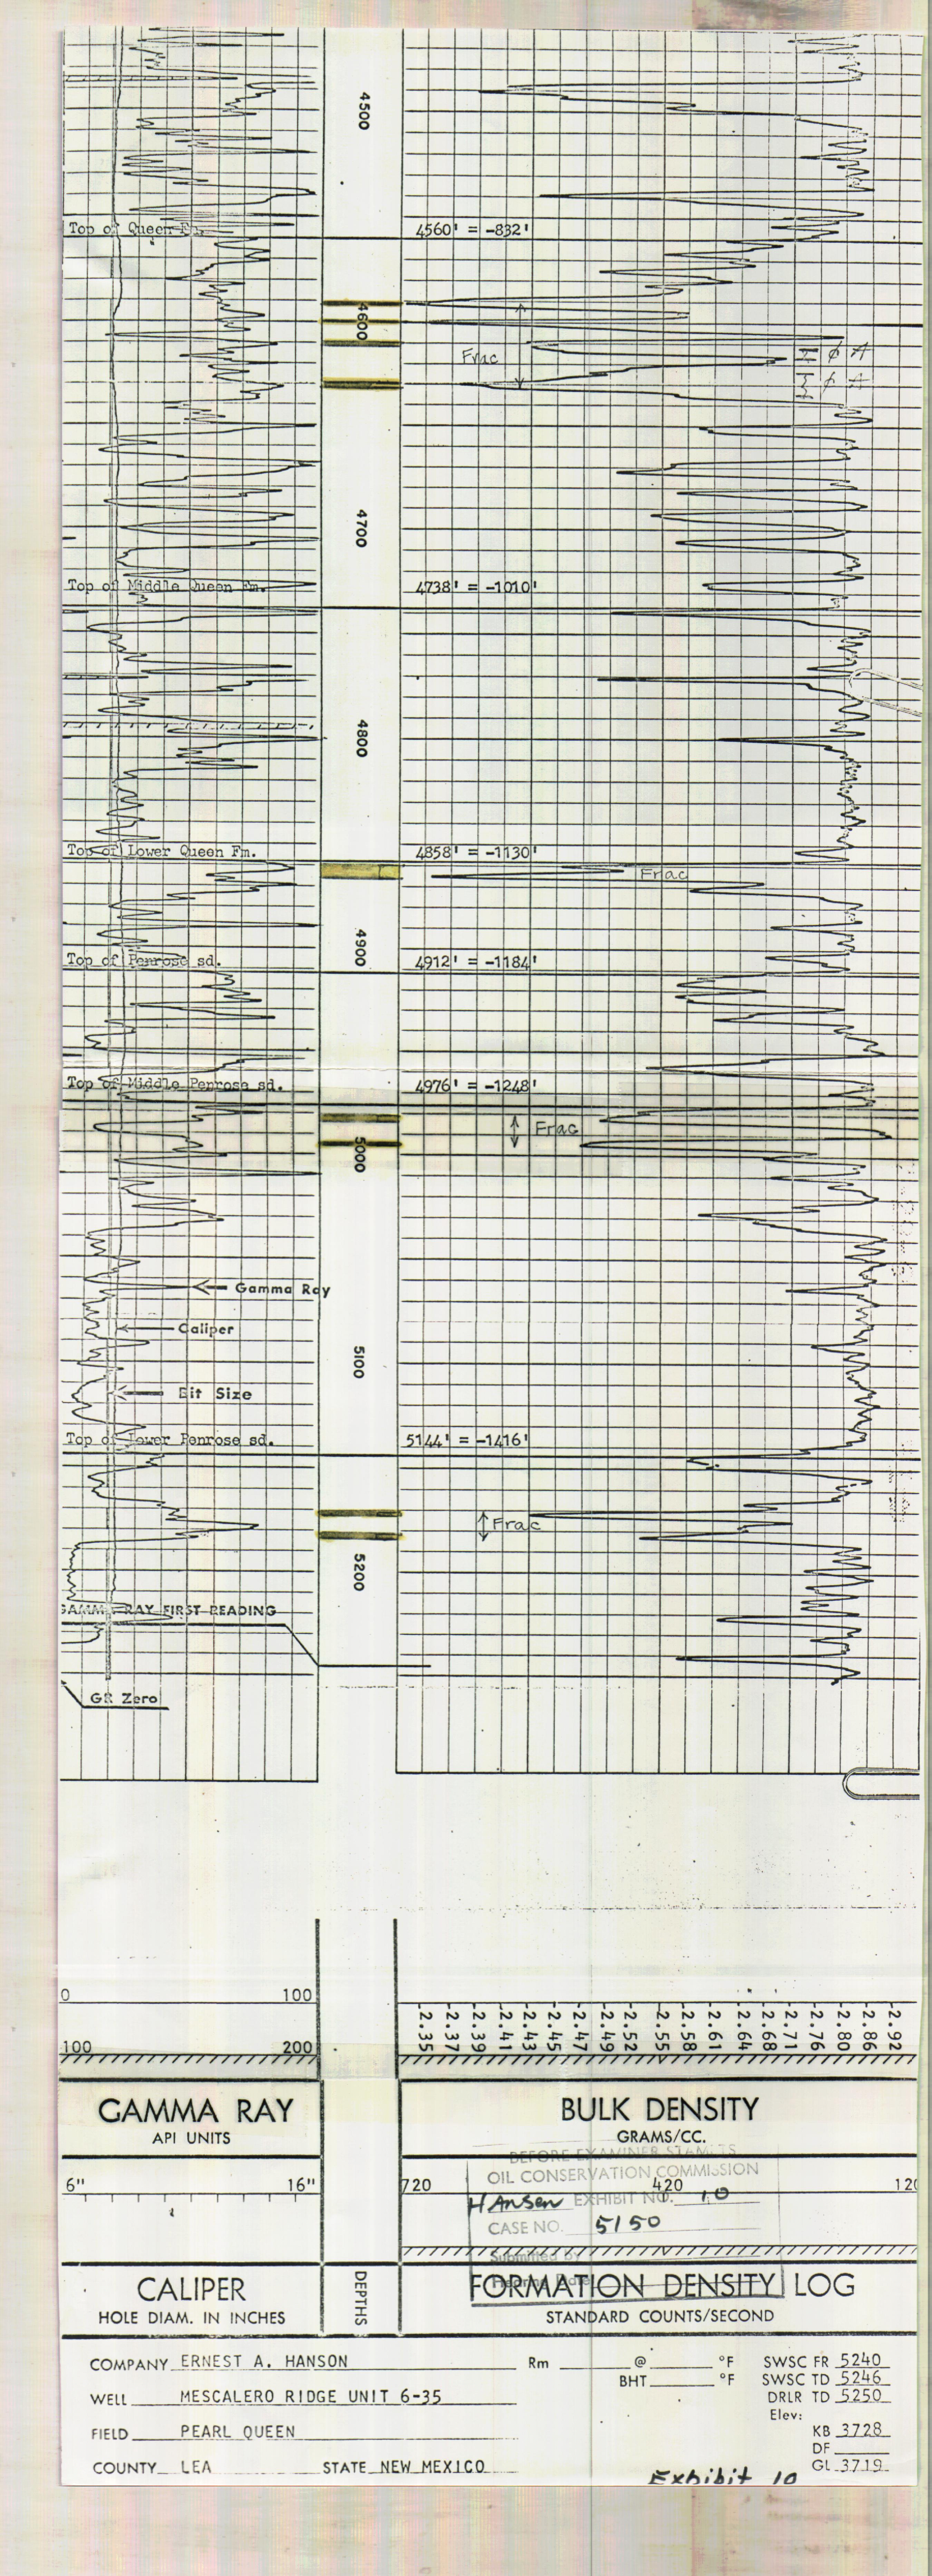 4500
Top of Queen Fm. 4560' = -832'
4600
Frac
ϕ A
ϕ A
4700
Top of Middle Queen Fm. 4738' = -1010'
4800
Top of Lower Queen Fm. 4858' = -1130'
Frac
4900
Top of Penrose sd. 4912' = -1184'
Top of Middle Penrose sd. 4976' = -1248'
Frac
5000
Gamma Ray
Caliper
5100
Bit Size
Top of Lower Penrose sd. 5144' = -1416'
Frac
5200
GAMMA RAY FIRST READING
GR Zero
0 100
-2.35 -2.37 -2.39 -2.41 -2.43 -2.45 -2.47 -2.49 -2.52 -2.55 -2.58 -2.61 -2.64 -2.68 -2.71 -2.76 -2.80 -2.86 -2.92
100 200
GAMMA RAY BULK DENSITY
API UNITS GRAMS/CC.
BEFORE EXAMINER STAMETS
OIL CONSERVATION COMMISSION
6" 16" 720 420 120
Hansen EXHIBIT NO. 10
CASE NO. 5150
Submitted by
CALIPER DEPTHS FORMATION DENSITY LOG
HOLE DIAM. IN INCHES STANDARD COUNTS/SECOND
COMPANY ERNEST A. HANSON Rm @ °F SWSC FR 5240
BHT °F SWSC TD 5246
WELL MESCALERO RIDGE UNIT 6-35 DRLR TD 5250
Elev:
FIELD PEARL QUEEN KB 3728
DF
COUNTY LEA STATE NEW MEXICO GL 3719
Exhibit 10